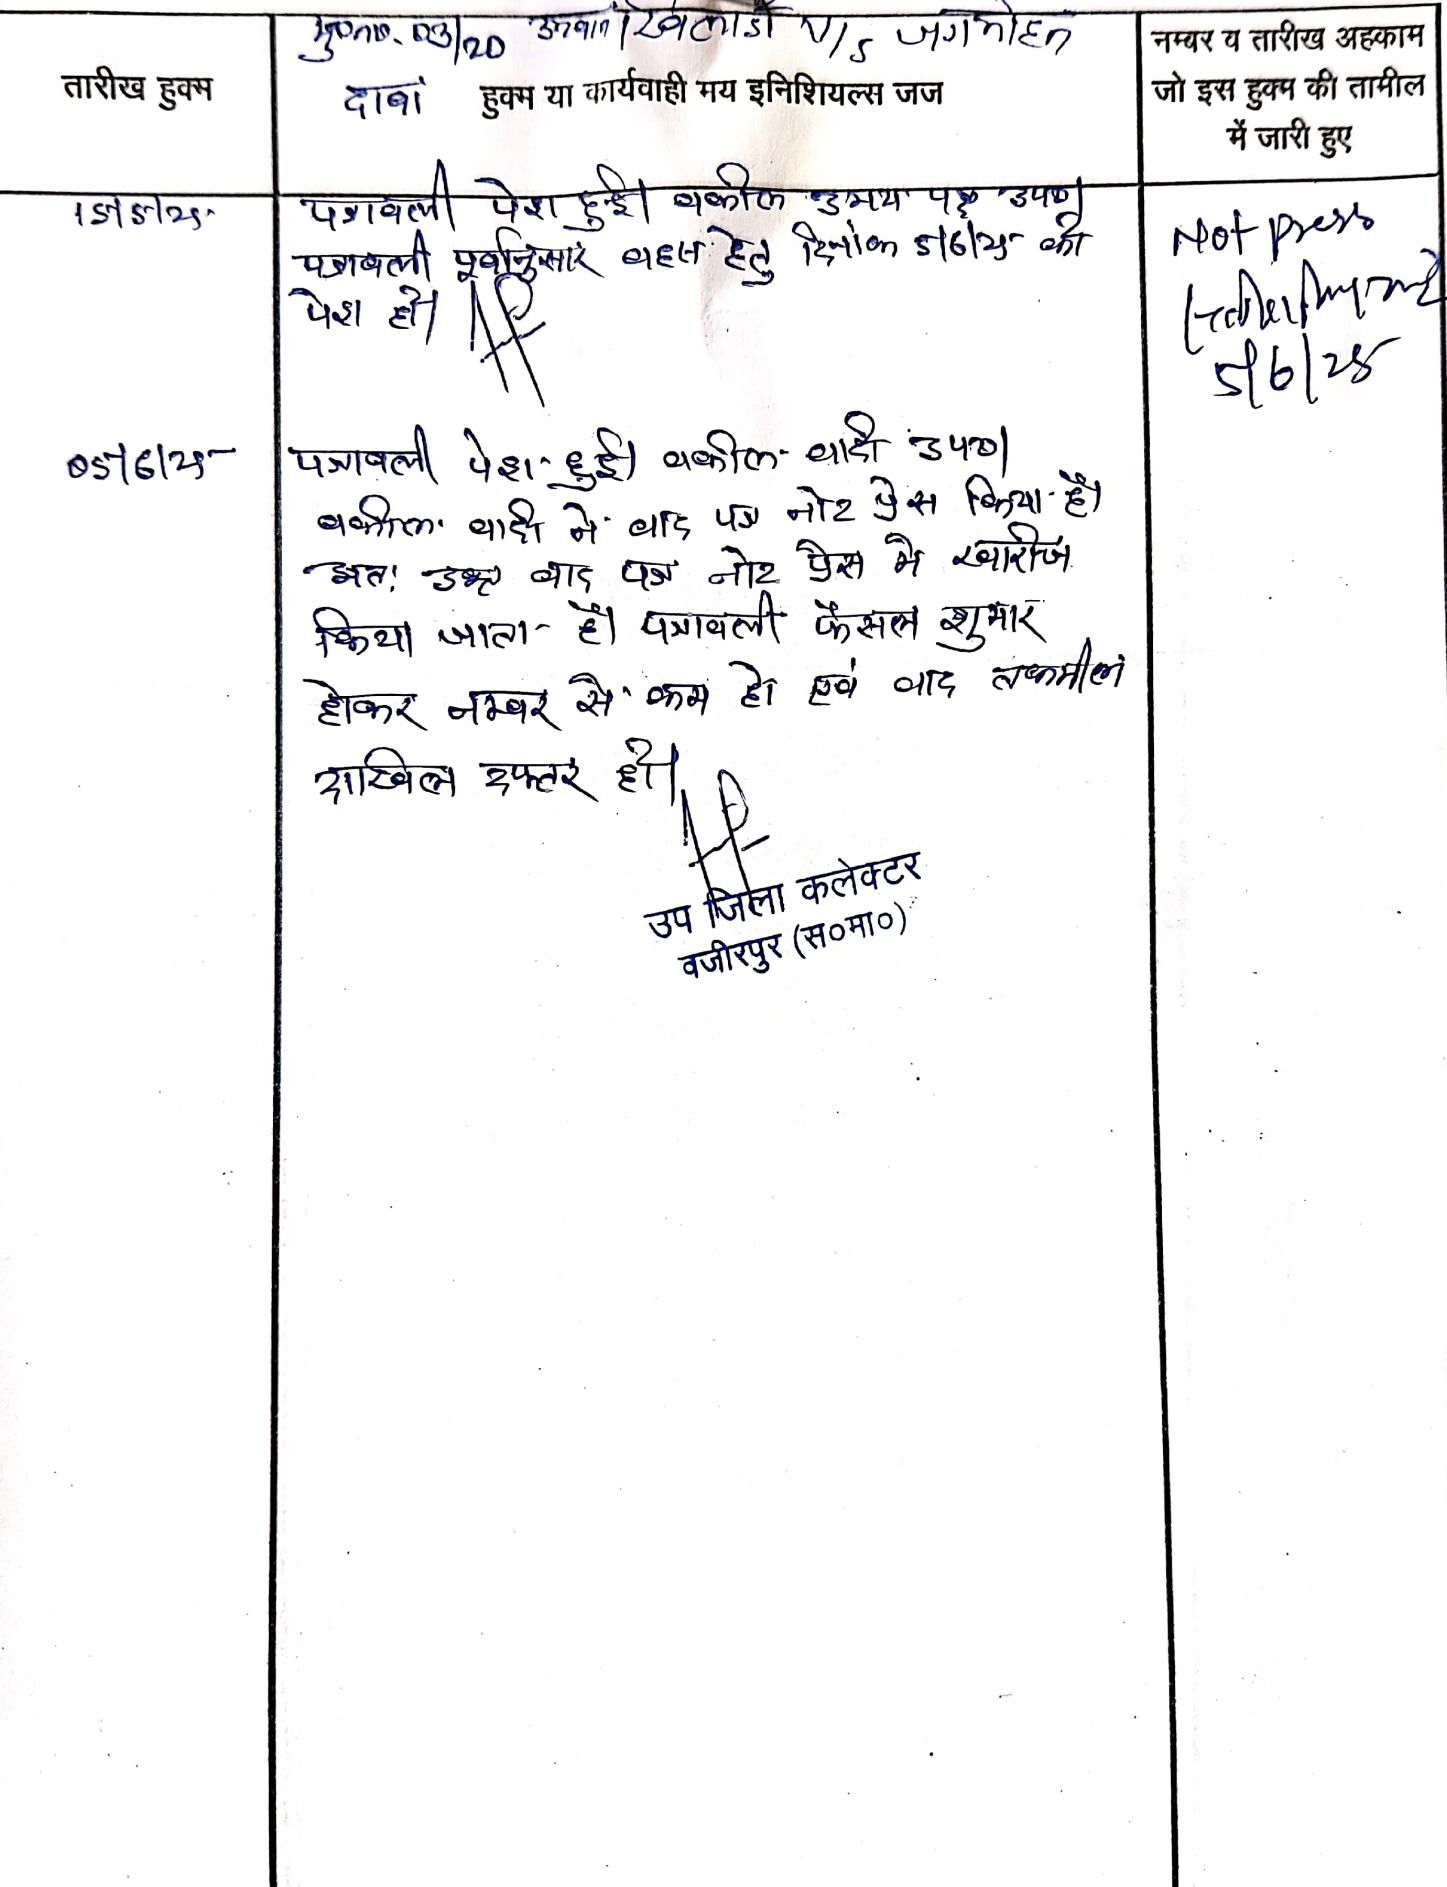 मु०न०. 03/20 उनवान खिलाडी V/s जगमोहन
तारीख हुक्म
दावा हुक्म या कार्यवाही मय इनिशियल्स जज
नम्बर व तारीख अहकाम
जो इस हुक्म की तामील
में जारी हुए
15/5/25
पत्रावली पेश हुई। वकील उभय पक्ष उप०।
पत्रावली पूर्वानुसार बहस हेतु दिनांक 5/6/25 को
पेश हो।
Not press
5/6/25
05/6/25
पत्रावली पेश हुई। वकील वादी उप०।
वकील वादी ने वाद पत्र नोट प्रेस किया है।
अतः उक्त वाद पत्र नोट प्रेस मै खारीज
किया जाता है। पत्रावली फैसल शुमार
होकर नम्बर से कम हो एवं वाद तकमील
दाखिल दफ्तर हो।
उप जिला कलेक्टर
वजीरपुर (स०मा०)